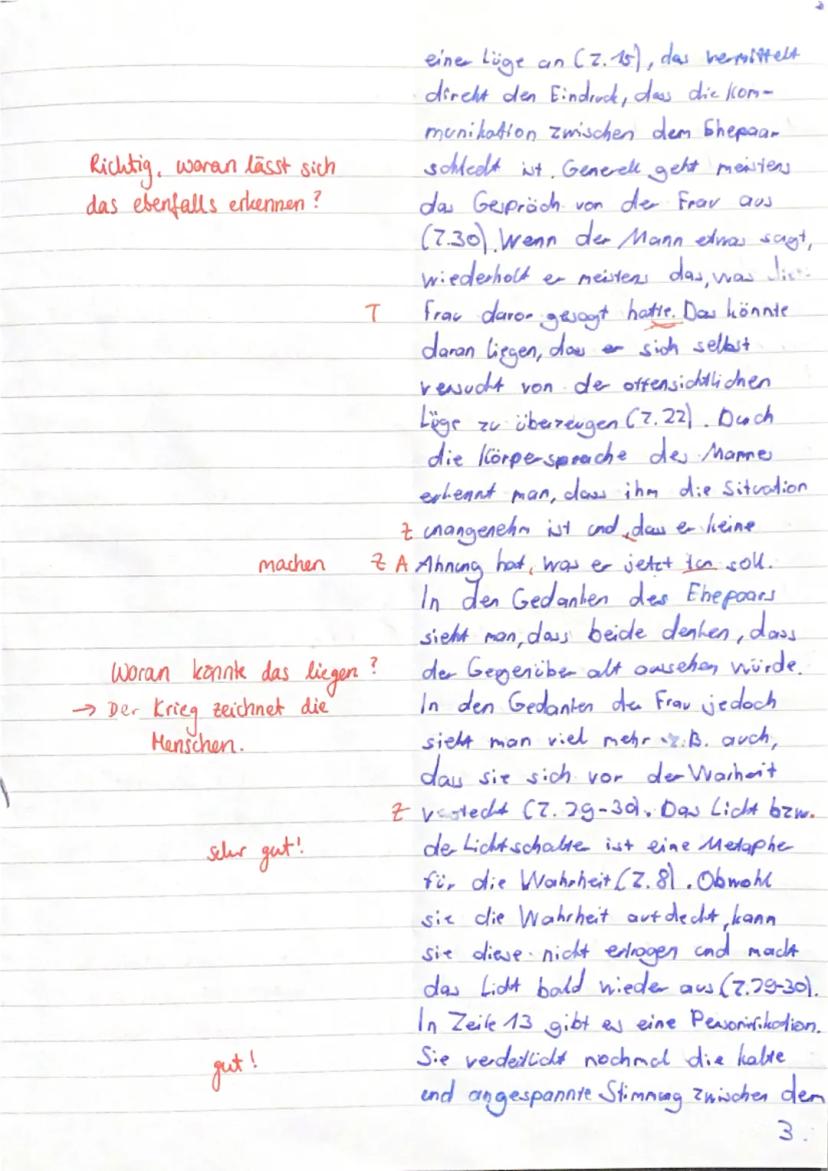 einer Lüge an (Z.15), das vermittelt
direkt den Eindruck, dass die Kom-
munikation zwischen dem Ehepaar
Richtig, woran lässt sich
schlecht ist. Generell geht meistens
das ebenfalls erkennen?
das Gespräch von der Frau aus
(Z.30). Wenn der Mann etwas sagt,
wiederholt er meistens das, was die
T
Frau davor gesagt hatte. Das könnte
daran liegen, dass er sich selbst
versucht von der offensichtlichen
Lüge zu überzeugen (Z.22). Durch
die Körpersprache des Mannes
erkennt man, dass ihm die Situation
Z
unangenehm ist und, dass er keine
machen Z A
Ahnung hat, was er jetzt tun soll.
In den Gedanken des Ehepaars
sieht man, dass beide denken, dass
Woran könnte das liegen?
der Gegenüber alt aussehen würde.
→ Der Krieg zeichnet die
In den Gedanken der Frau jedoch
Menschen.
sieht man viel mehr z.B. auch,
dass sie sich vor der Warheit
Z
versteckt (Z.29-30). Das Licht bzw.
sehr gut!
der Lichtschalter ist eine Metapher
für die Wahrheit (Z.8). Obwohl
sie die Wahrheit aufdeckt, kann
sie diese nicht ertragen und macht
das Licht bald wieder aus (Z.29-30).
In Zeile 13 gibt es eine Personifikation.
gut!
Sie verdeutlicht nochmal die kalte
und angespannte Stimmung zwischen dem
3.